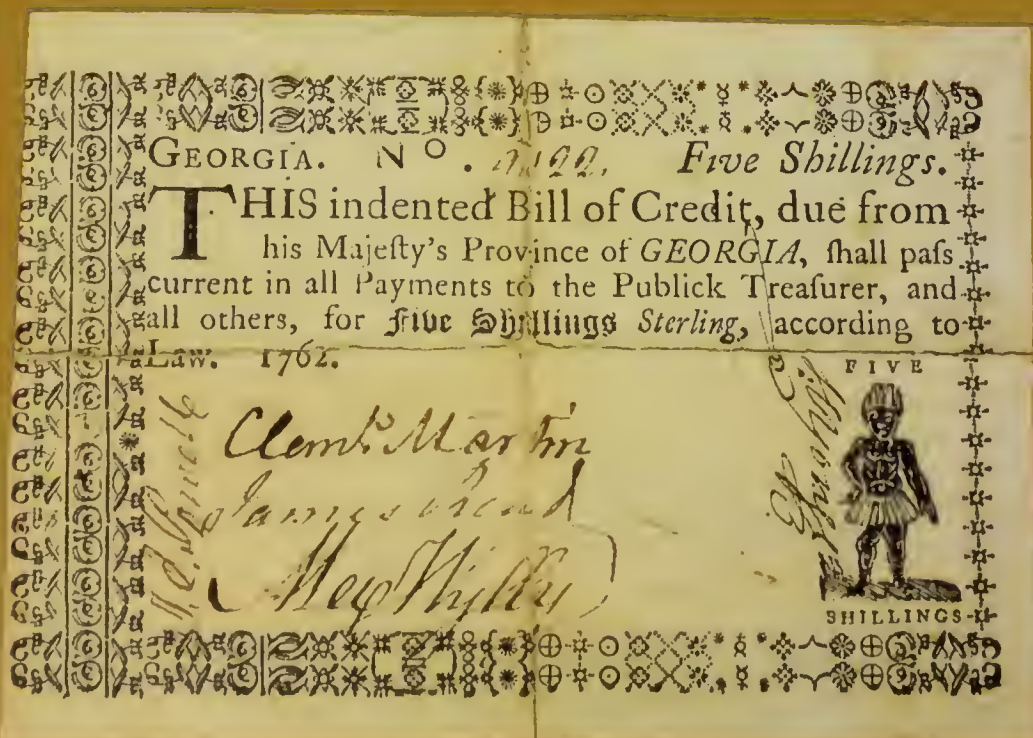 GEORGIA. No. 2122. Five Shillings.
THIS indented Bill of Credit, due from
his Majeſty's Province of GEORGIA, ſhall paſs
current in all Payments to the Publick Treaſurer, and
all others, for Five Shillings Sterling, according to
Law. 1762.
FIVE
Clemt. Martin
James Read
Alex Wylly
SHILLINGS